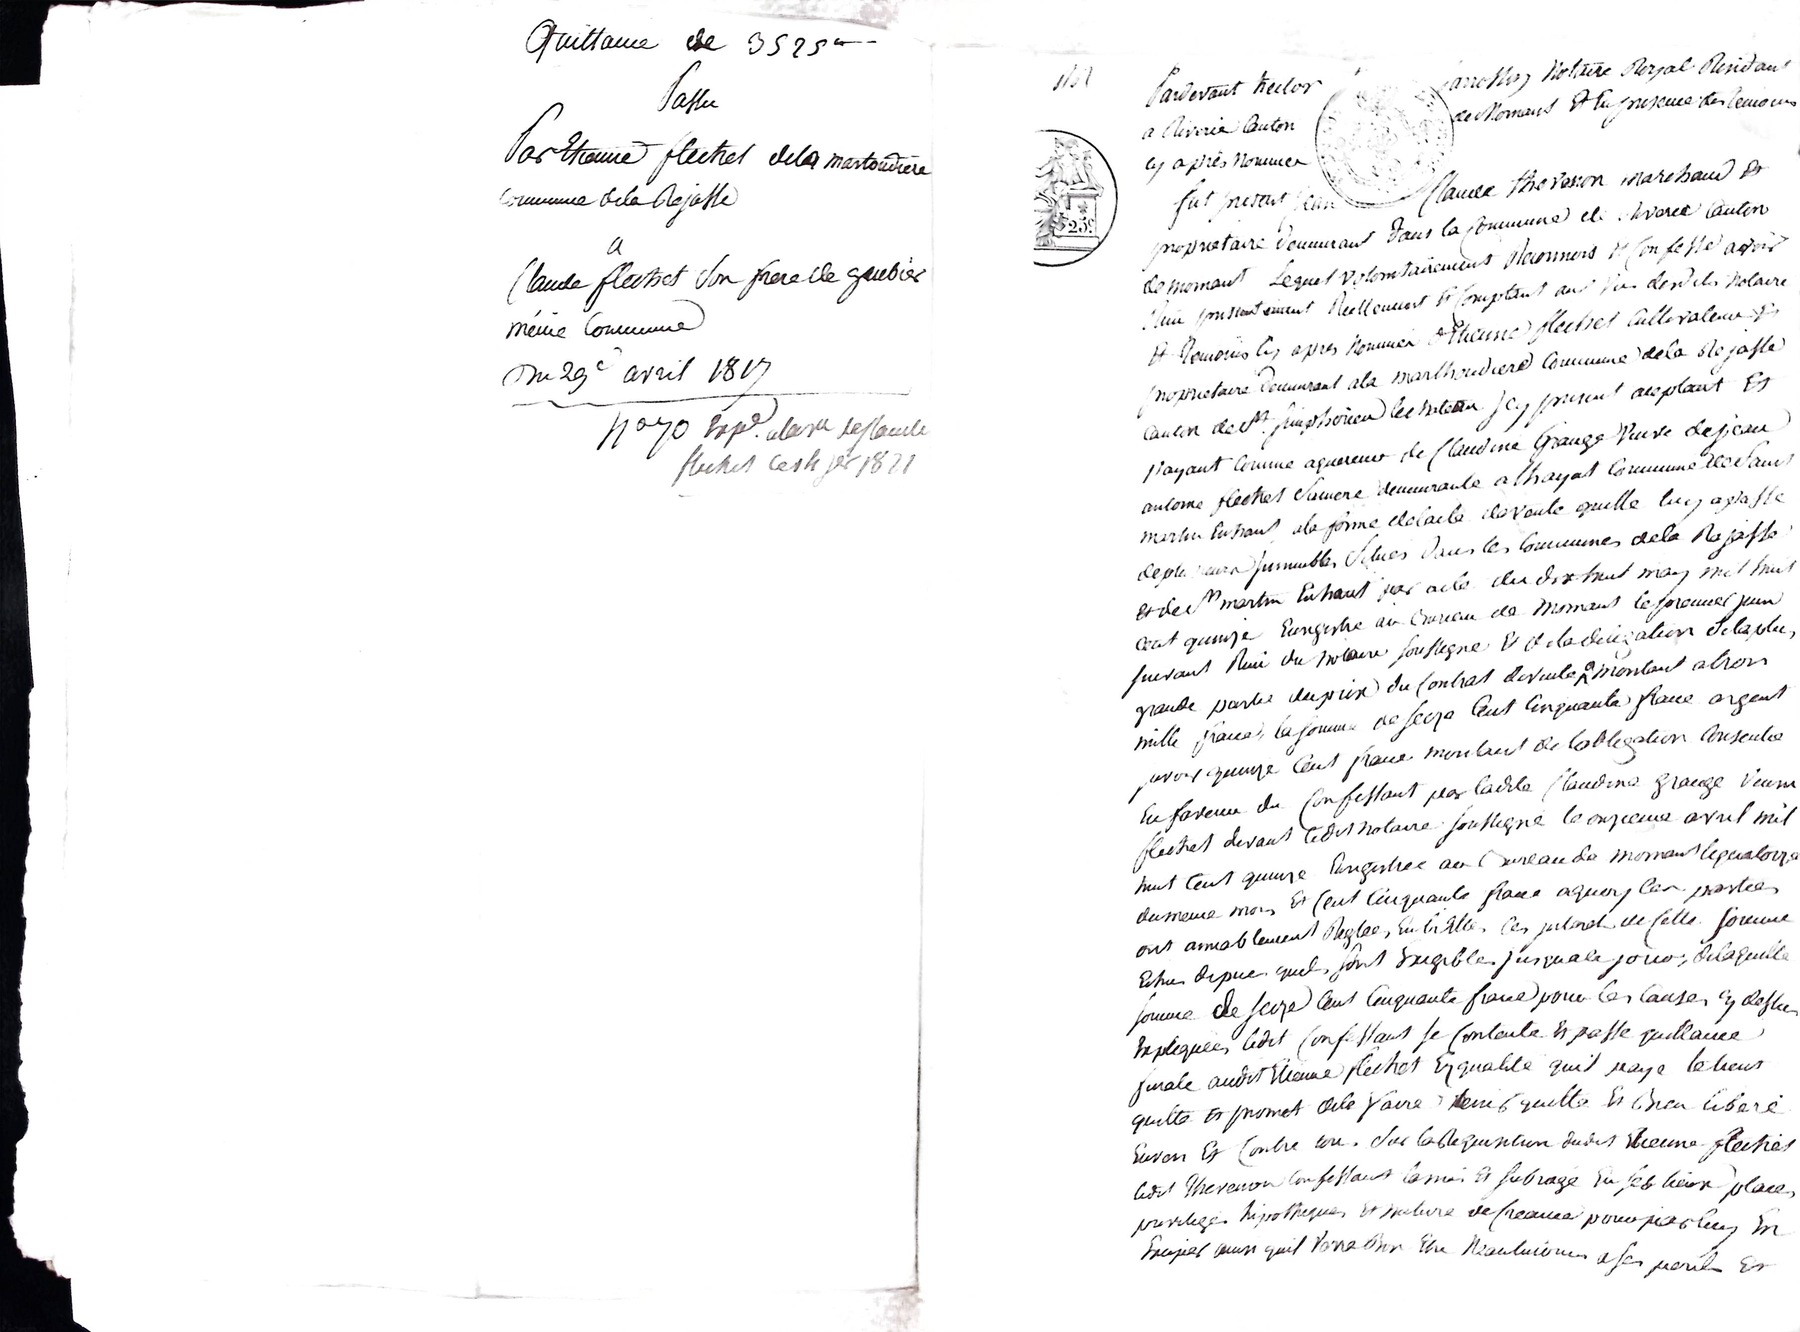 Quittance de 3525#
Passee
Par Etienne flechet de la martoudiere
Commune de la Rajasse
a
Claude flechet Son frere de goubier
même Commune
Du 29e avril 1817
N° 70 Exp.d
flechet 1821
Pardevant hector Notaire Royal Residant
a Riverie Canton de Mornant Et En presence des temoins
cy après Nommes
fut present Jean Claude thevenon marchand Et
proprietaire demeurant dans la Commune de Riverie Canton
de mornant Lequel volontairement Reconnois et Confesse avoir
Reçu presentement Reellement Et Comptant aux vües desdits Notaire
Et temoins cy apres Nommés d'Etienne flechet Cultivateur Et
proprietaire demeurant a la marthoudiere Commune de la Rajasse
Canton de St Simphorien le chateau Icy present aceptant Et
payant Comme aquereur de Claudine Grange Veuve de jean
antoine flechet Sa mere demeurante a thayot Commune de Saint
martin Enhaut a la forme de l'acte de vente quelle luy a passe
de plusieurs Immeubles Situés dans les Communes de la Rajasse
et de St martin Enhaut par acte du dix huit may mil huit
cent quinze Enregistré au Bureau de Mornant le premier juin
suivant Reçu du Notaire soussigné Et de la délégation de la plus
grande partie du prix du Contrat de vente montant a trois
mille francs, la somme de seize Cent Cinquante francs argent
pour quinze Cent francs montant de l'obligation Consentie
En faveur du Confessant par ladite Claudine grange Veuve
flechet devant ledit Notaire soussigné le onzieme avril mil
huit Cent quinze Enregistrée au Bureau de mornant le quatorze
du meme mois Et Cent Cinquante francs a quoy les parties
ont amiablement Reglés, Entr'Elles les interets de Cette somme
Echus depuis quils sont Exigibles jusqua ce jour, de laquelle
somme de seize Cent Cinquante francs pour les Causes cy dessus
Expliquées ledit Confessant se Contente Et passe quittance
finale audit Etienne flechet En qualité quil paye le tient
quitte Et promet de le faire tenir quitte Et Bien liberé
Envers Et Contre tous. Sur la Requisition dudit Etienne flechet
ledit thevenon Confessant la mis Et subrogé En ses lieux places
privileges hipotheques Et nature de Creance pour par luy En
Exiper ainsi quil verra Bon Etre Neanmoins a ses perils Et